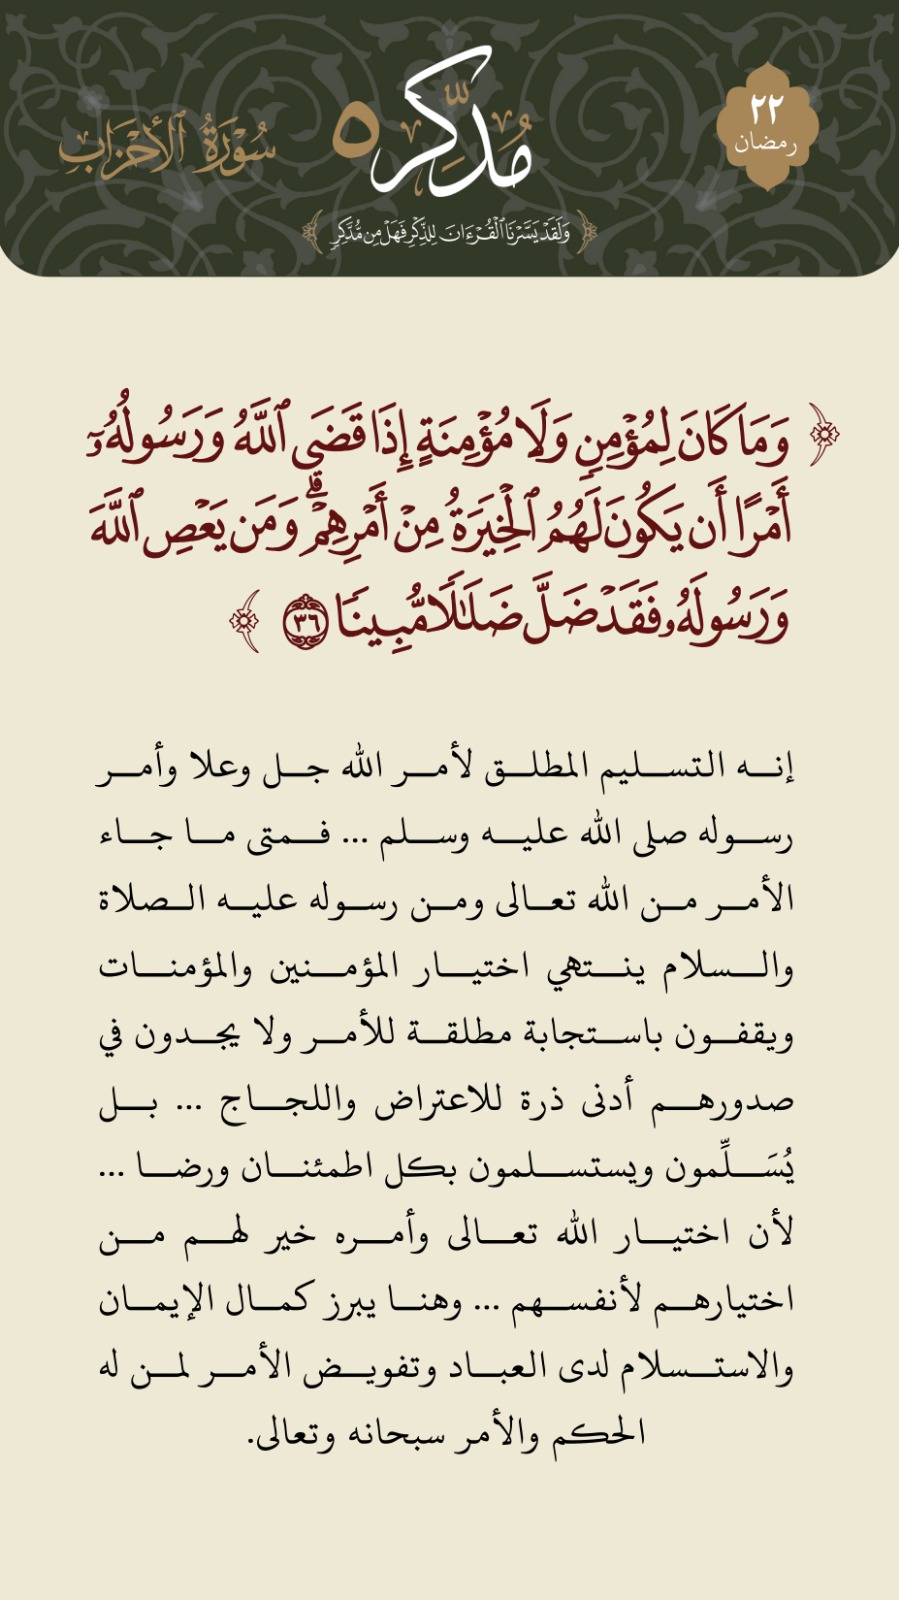 ٢٢
رمضان
مُدَّكِر ٥
سُورَةُ ٱلأَحْزَاب
﴿ وَلَقَدْ يَسَّرْنَا ٱلْقُرْءَانَ لِلذِّكْرِ فَهَلْ مِن مُّدَّكِرٍ ﴾
﴿ وَمَا كَانَ لِمُؤْمِنٍ وَلَا مُؤْمِنَةٍ إِذَا قَضَى ٱللَّهُ وَرَسُولُهُۥٓ
أَمْرًا أَن يَكُونَ لَهُمُ ٱلْخِيَرَةُ مِنْ أَمْرِهِمْ ۗ وَمَن يَعْصِ ٱللَّهَ
وَرَسُولَهُۥ فَقَدْ ضَلَّ ضَلَٰلًا مُّبِينًا ٣٦ ﴾
إنه التسليم المطلق لأمر الله جل وعلا وأمر
رسوله صلى الله عليه وسلم ... فمتى ما جاء
الأمر من الله تعالى ومن رسوله عليه الصلاة
والسلام ينتهي اختيار المؤمنين والمؤمنات
ويقفون باستجابة مطلقة للأمر ولا يجدون في
صدورهم أدنى ذرة للاعتراض واللجاج ... بل
يُسَلِّمون ويستسلمون بكل اطمئنان ورضا ...
لأن اختيار الله تعالى وأمره خير لهم من
اختيارهم لأنفسهم ... وهنا يبرز كمال الإيمان
والاستسلام لدى العباد وتفويض الأمر لمن له
الحكم والأمر سبحانه وتعالى.